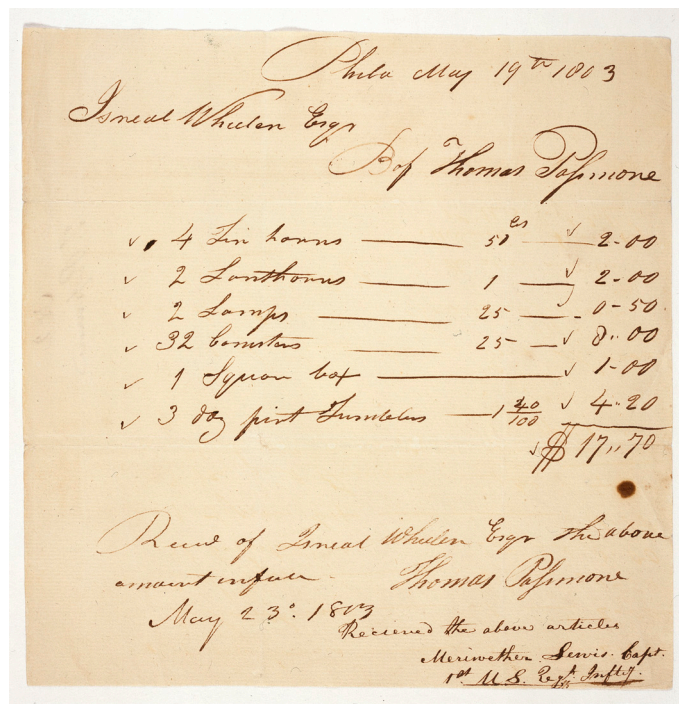 Phila May 19th 1803
Isreal Wheelen Esqr
Bof Thomas Passmore
4 Tin hornns —— 50 cs — 2-00
2 Lanthorns —— 1 — 2-00
2 Lamps —— 25 — 0-50
32 Canisters —— 25 — 8"00
1 Square box —— 1-00
3 doz pint Tumblers — 1 40/100 4"20
$ 17"70
Recd of Isreal Wheelen Esqr the above
amount in full Thomas Passmore
May 23d. 1803
Recieved the above articles
Meriwether Lewis. Capt.
1st U.S. Regt. Inft'y.